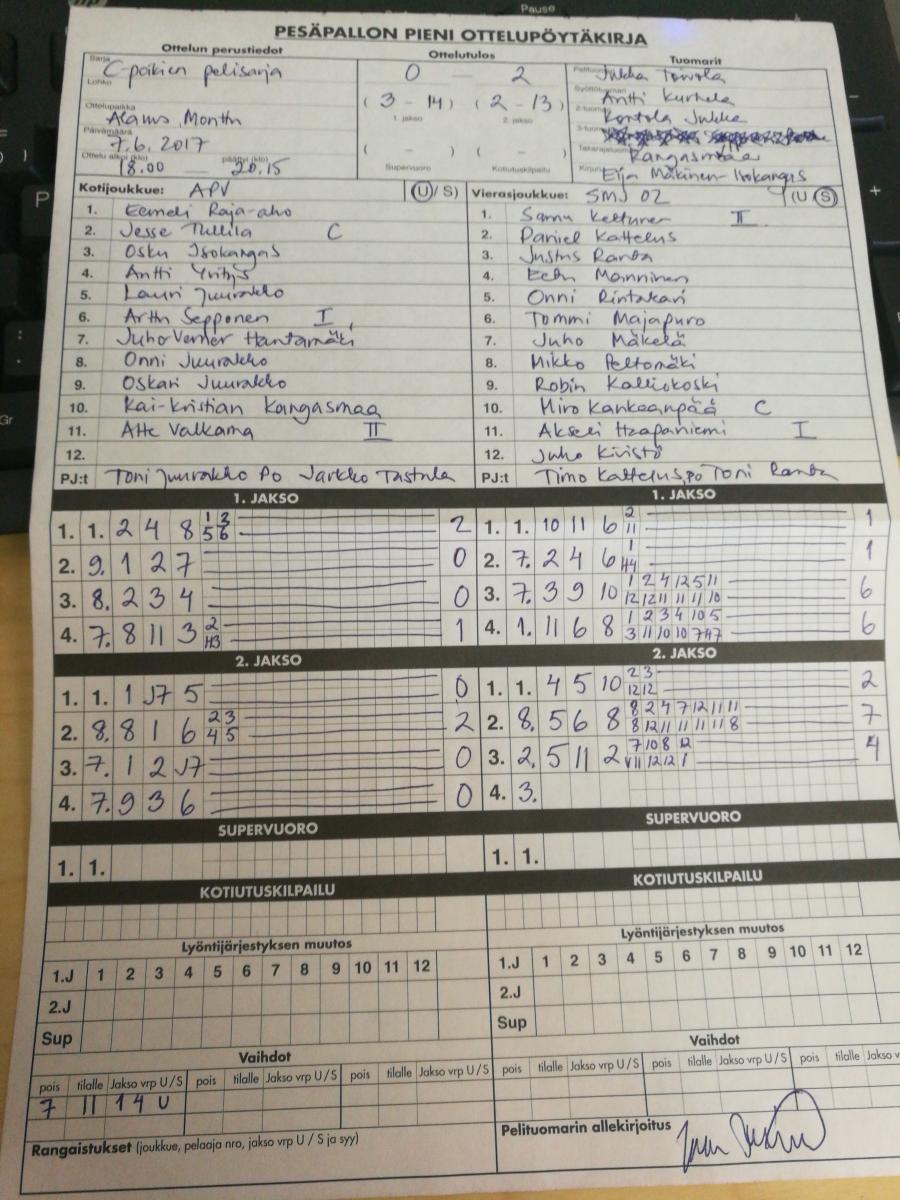 Pause
PESÄPALLON PIENI OTTELUPÖYTÄKIRJA
Ottelun perustiedot
Ottelutulos
Tuomarit
Sarja
C-poikien pelisarja
Lohko
0 — 2
(3 - 14) (2 - 13)
1. jakso 2. jakso
( - ) ( - )
Supervuoro Kotiutuskilpailu
Jukka Toivola
Antti Kurhela
Kontola Jukka
Kangasmaa
Eija Mäkinen-Isokangas
Ottelupaikka
Alamus Monttu
Päivämäärä
7.6.2017
Ottelu alkoi (klo) päättyi (klo)
18.00 — 20.15
Kotijoukkue: APV (U / S)
1. Eemeli Raja-aho
2. Jesse Tullila C
3. Osku Isokangas
4. Antti Yritys
5. Lauri Juurakko
6. Arttu Sepponen I
7. Juho Verner Hantamäki
8. Onni Juurakko
9. Oskari Juurakko
10. Kai-Kristian Kangasmaa
11. Atte Valkama II
12.
PJ:t Toni Juurakko PO Jarkko Tastula
Vierasjoukkue: SMJ 02 (U / S)
1. Samu Keltunen II
2. Daniel Kattelus
3. Justus Ranta
4. Eetu Manninen
5. Onni Rintakari
6. Tommi Majapuro
7. Juho Mäkelä
8. Mikko Peltomäki
9. Robin Kalliokoski
10. Miro Kankaanpää C
11. Akseli Haapaniemi I
12. Juho Kivistö
PJ:t Timo Kattelus, po Toni Ranta
1. JAKSO
1. 1. 2 4 8 1 3 2
5 6
2. 9. 1 2 7 0
3. 8. 2 3 4 0
4. 7. 8 11 3 2 1
H3
1. JAKSO
1. 1. 10 11 6 2 1
11
2. 7. 2 4 6 1 1
H4
3. 7. 3 9 10 1 2 4 12 5 11 6
12 12 11 11 11 10
4. 1. 11 6 8 1 2 3 4 10 5 6
3 11 10 10 7 H7
2. JAKSO
1. 1. 1 J7 5 0
2. 8. 8 1 6 2 3 2
4 5
3. 7. 1 2 J7 0
4. 7. 9 3 6 0
2. JAKSO
1. 1. 4 5 10 2 3 2
12 12
2. 8. 5 6 8 8 2 4 7 12 11 11 7
8 12 11 11 11 11 8
3. 2. 5 11 2 7 10 8 12 4
V11 12 12 1
4. 3.
SUPERVUORO
1. 1.
SUPERVUORO
1. 1.
KOTIUTUSKILPAILU
KOTIUTUSKILPAILU
Lyöntijärjestyksen muutos
1.J 1 2 3 4 5 6 7 8 9 10 11 12
2.J
Sup
Lyöntijärjestyksen muutos
1.J 1 2 3 4 5 6 7 8 9 10 11 12
2.J
Sup
Vaihdot
pois tilalle Jakso vrp U / S pois tilalle Jakso vrp U / S pois tilalle Jakso vrp U / S
7 11 1 4 U
Vaihdot
pois tilalle Jakso vrp U / S pois tilalle Jakso vrp U / S pois tilalle Jakso v
Rangaistukset (joukkue, pelaaja nro, jakso vrp U / S ja syy)
Pelituomarin allekirjoitus